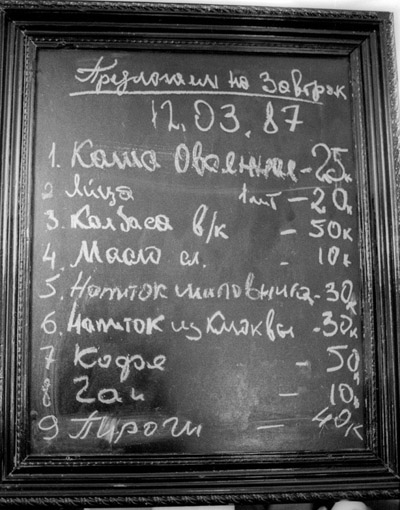 Предлагаем на Завтрак
12.03.87
1. Каша Овсянная - 25к
2 Яйца 1шт - 20к
3. Колбаса в/к - 50к
4. Масло сл. - 10к
5. Напиток шиповника - 30к
6. Напиток из Клюквы - 30к
7 Кофе - 50
8 Чай - 10к
9 Пироги - 40к